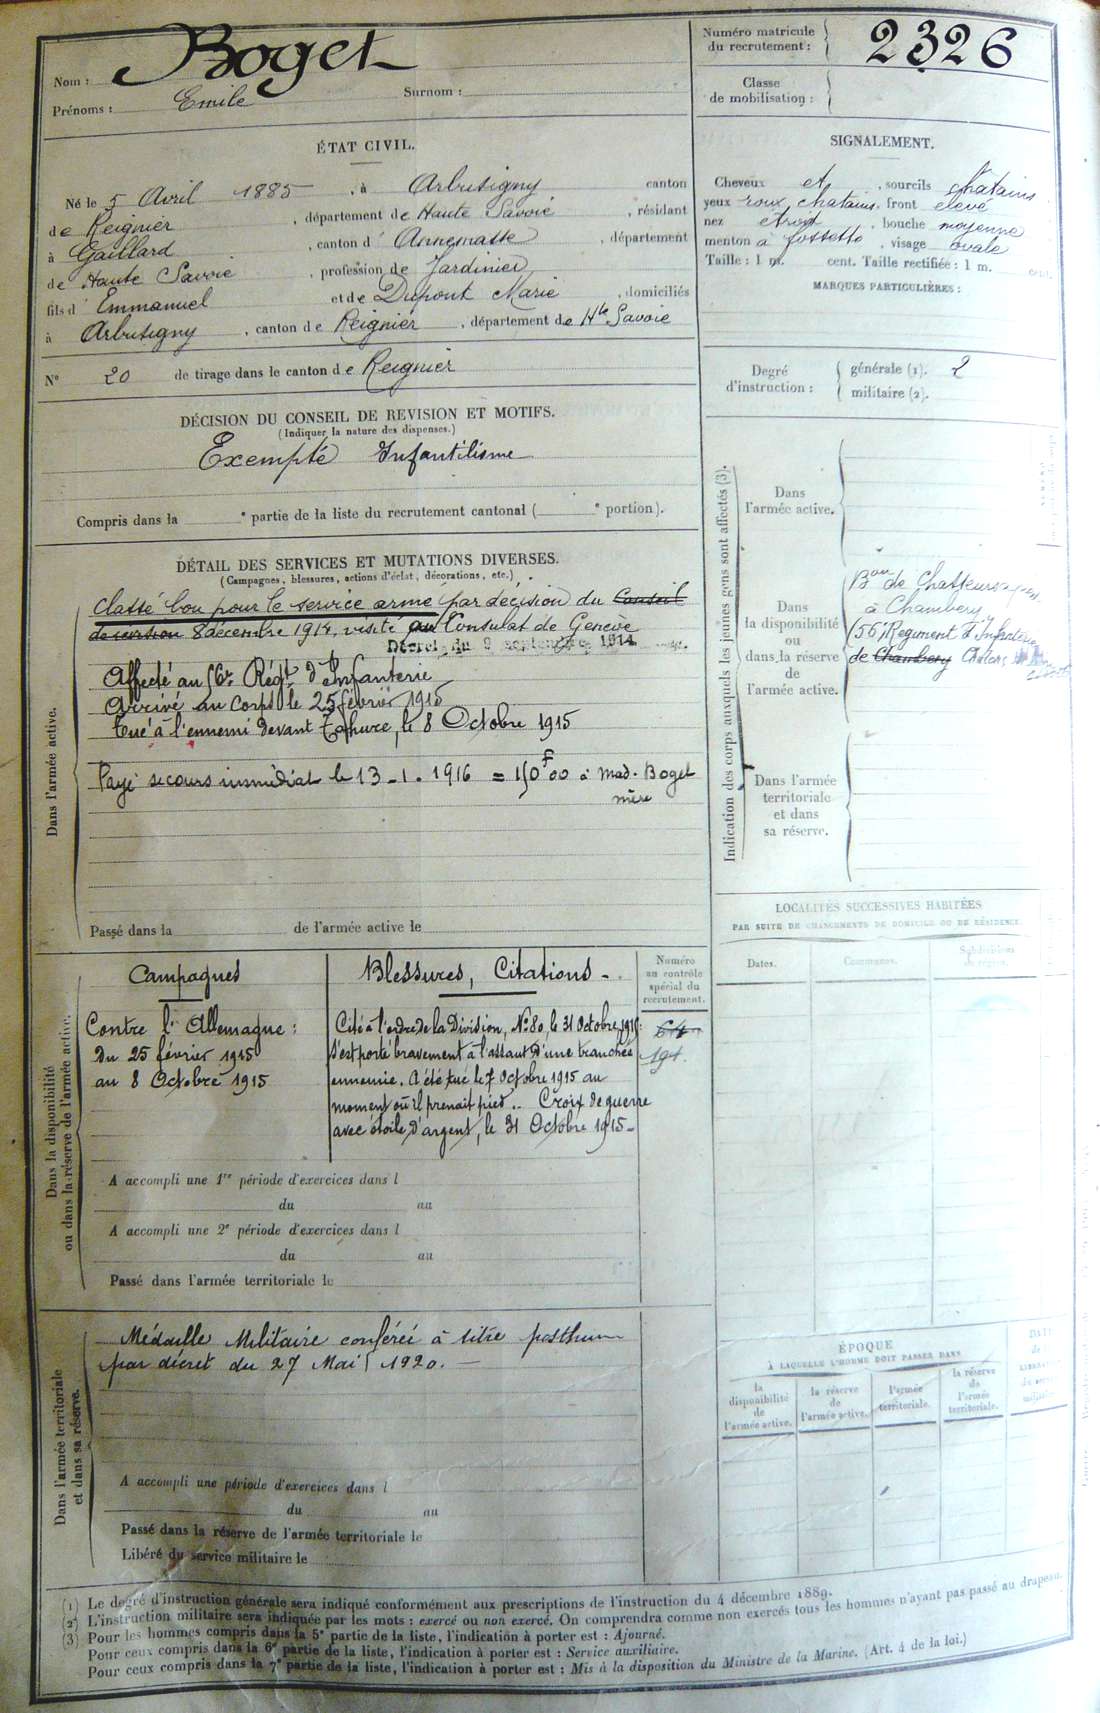 Nom : Boget
Prénoms : Emile Surnom :
Numéro matricule
du recrutement : 2326
Classe
de mobilisation :
ÉTAT CIVIL.
Né le 5 Avril 1885, à Arbusigny canton
de Reignier, département de Haute Savoie, résidant
à Gaillard, canton d' Annemasse, département
de Haute Savoie, profession de Jardinier
fils d' Emmanuel et de Dupont Marie, domiciliés
à Arbusigny, canton de Reignier, département de Hte Savoie
N° 20 de tirage dans le canton de Reignier
SIGNALEMENT.
Cheveux et, sourcils chatains
yeux roux chatains, front élevé
nez étroit, bouche moyenne
menton à fossette, visage ovale
Taille : 1 m. cent. Taille rectifiée : 1 m. cent.
MARQUES PARTICULIÈRES :
Degré
d'instruction :
générale (1). 2
militaire (2).
DÉCISION DU CONSEIL DE REVISION ET MOTIFS.
(Indiquer la nature des dispenses.)
Exempté Infantilisme
Compris dans la e partie de la liste du recrutement cantonal ( e portion).
DÉTAIL DES SERVICES ET MUTATIONS DIVERSES.
(Campagnes, blessures, actions d'éclat, décorations, etc.)
Dans l'armée active.
Classé bon pour le service armé par décision du Conseil
de revision 8 décembre 1914, visité au Consulat de Genève
Décret du 9 septembre 1914
Affecté au 56e Régt d'Infanterie
Arrivé au corps le 25 février 1915
Tué à l'ennemi devant Tahure, le 8 Octobre 1915
Payé secours immédiat le 13-1-1916 = 150f00 à Mad. Boget
mère
Passé dans la de l'armée active le
Indication des corps auxquels les jeunes gens sont affectés (3).
Dans
l'armée active.
Dans
la disponibilité
ou
dans la réserve
de
l'armée active.
Bon de Chasseurs
à Chambéry
56 Régiment d'Infanterie
de Chambery
Dans l'armée
territoriale
et dans
sa réserve.
LOCALITÉS SUCCESSIVES HABITÉES
PAR SUITE DE CHANGEMENTS DE DOMICILE OU DE RÉSIDENCE.
Dates. Communes. Subdivisions
de région.
Dans la disponibilité
ou dans la réserve de l'armée active.
Campagnes
Contre l'Allemagne :
Du 25 février 1915
au 8 Octobre 1915
Blessures, Citations -
Cité à l'ordre de la Division, N° 80, le 31 Octobre 1915:
S'est porté bravement à l'assaut d'une tranchée
ennemie. A été tué le 7 Octobre 1915 au
moment où il prenait pied.. Croix de guerre
avec étoile d'argent, le 31 Octobre 1915-
Numéro
au contrôle
spécial du
recrutement.
194.
A accompli une 1re période d'exercices dans l
du au
A accompli une 2e période d'exercices dans l
du au
Passé dans l'armée territoriale le
Dans l'armée territoriale
et dans sa réserve.
Médaille Militaire conférée à titre posthume
par décret du 27 Mai 1920. -
A accompli une période d'exercices dans l
du au
Passé dans la réserve de l'armée territoriale le
Libéré du service militaire le
ÉPOQUE
À LAQUELLE L'HOMME DOIT PASSER DANS
la
disponibilité
de
l'armée active.
la réserve
de
l'armée active.
l'armée
territoriale.
la réserve
de
l'armée
territoriale.
DATE
de
(1) Le degré d'instruction générale sera indiqué conformément aux prescriptions de l'instruction du 4 décembre 1889.
(2) L'instruction militaire sera indiquée par les mots : exercé ou non exercé. On comprendra comme non exercés tous les hommes n'ayant pas passé au drapeau.
(3) Pour les hommes compris dans la 5e partie de la liste, l'indication à porter est : Ajourné.
Pour ceux compris dans la 6e partie de la liste, l'indication à porter est : Service auxiliaire.
Pour ceux compris dans la 7e partie de la liste, l'indication à porter est : Mis à la disposition du Ministre de la Marine. (Art. 4 de la loi.)